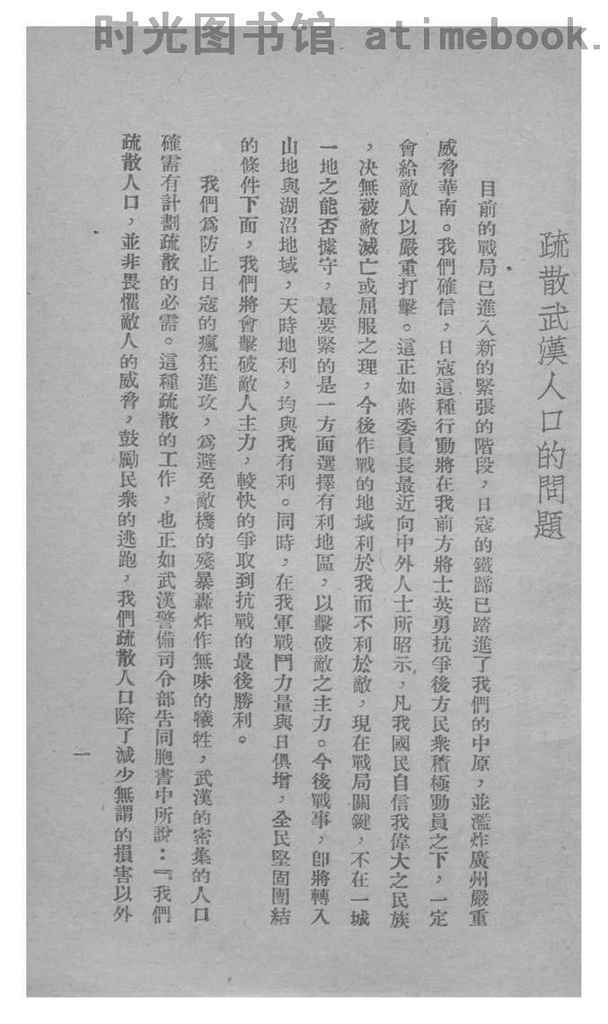 时光图书馆 atimebook.
疏散武漢人口的問題
目前的戰局已進入新的緊張的階段，日寇的鐵蹄已踏進了我們的中原，並濫炸廣州嚴重
威脅華南。我們確信，日寇這種行動將在我前方將士英勇抗爭後方民衆積極動員之下，一定
會給敵人以嚴重打擊。這正如蔣委員長最近向中外人士所昭示，凡我國民自信我偉大之民族
，决無被敵滅亡或屈服之理，今後作戰的地域利於我而不利於敵，現在戰局關鍵，不在一城
一地之能否據守，最要緊的是一方面選擇有利地區，以擊破敵之主力。今後戰事，卽將轉入
山地與湖沼地域，天時地利，均與我有利。同時，在我軍戰鬥力量與日俱增，全民堅固團結
的條件下面，我們將會擊破敵人主力，較快的爭取到抗戰的最後勝利。
我們爲防止日寇的瘋狂進攻，爲避免敵機的殘暴轟炸作無味的犧牲，武漢的密集的人口
確需有計劃疏散的必需。這種疏散的工作，也正如武漢警備司令部告同胞書中所說：『我們
疏散人口，並非畏懼敵人的威脅，鼓勵民衆的逃跑，我們疏散人口除了減少無謂的損害以外
一